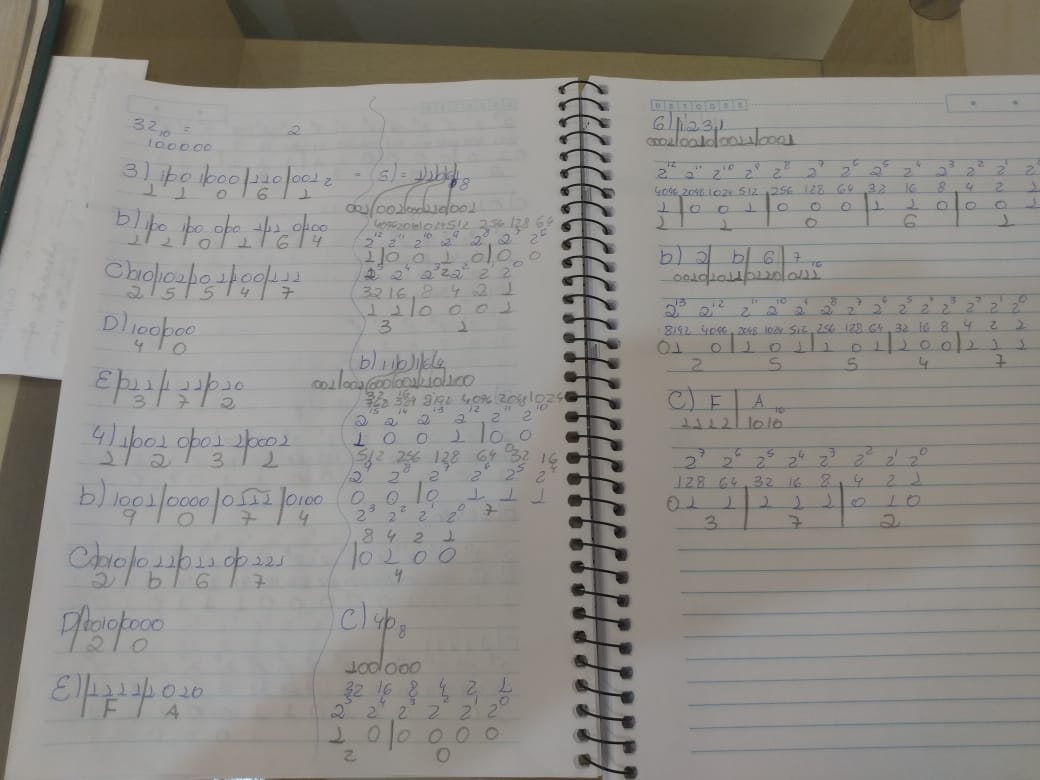 32₁₀ = 2
100000
3) 1|001|000|110|001₂ =
1 1 0 6 1
b) 1|001|000|001|110|100
1 1 0 1 6 4
C) 010|101|101|100|111
2 5 5 4 7
D) 100|000
4 0
E) 011|111|010
3 7 2
4) 1|0010|0011|0001
1 2 3 1
b) 1001|0000|0111|0100
9 0 7 4
C) 0010|1011|0110|0111
2 b 6 7
D) 0010|0000
2 0
E) 1111|1010
F A
5) = 11061₈
001|001|000|110|001
4096 2048 1024 512 256 128 64
2¹² 2¹¹ 2¹⁰ 2⁹ 2⁸ 2⁷ 2⁶
1|0 0 1 0|0 0
2⁵ 2⁴ 2³ 2² 2¹ 2⁰
32 16 8 4 2 1
1 1|0 0 0 1
3 1
b) 110164
001|001|000|001|110|100
2¹⁵ 2¹⁴ 2¹³ 2¹² 2¹¹ 2¹⁰
1 0 0 1|0 0
512 256 128 64 32 16
0 0|0 1 1 1
7
2³ 2² 2¹ 2⁰
8 4 2 1
|0 1 0 0
4
C) 40₈
100|000
32 16 8 4 2 1
2⁵ 2⁴ 2³ 2² 2¹ 2⁰
1 0|0 0 0 0
2 0
6) 1231
0001|0010|0011|0001
2¹² 2¹¹ 2¹⁰ 2⁹ 2⁸ 2⁷ 2⁶ 2⁵ 2⁴ 2³ 2² 2¹ 2⁰
4096 2048 1024 512 256 128 64 32 16 8 4 2 1
1|0 0 1|0 0 0|1 1 0|0 0 1
1 1 0 6 1
b) 2|b|6|7₁₆
0010|1011|0110|0111
2¹³ 2¹² 2¹¹ 2¹⁰ 2⁹ 2⁸ 2⁷ 2⁶ 2⁵ 2⁴ 2³ 2² 2¹ 2⁰
8192 4096 2048 1024 512 256 128 64 32 16 8 4 2 1
0 1 0|1 0 1|1 0 1|1 0 0|1 1 1
2 5 5 4 7
C) F|A₁₆
1111|1010
2⁷ 2⁶ 2⁵ 2⁴ 2³ 2² 2¹ 2⁰
128 64 32 16 8 4 2 1
0 1 1|1 1 1|0 1 0
3 7 2